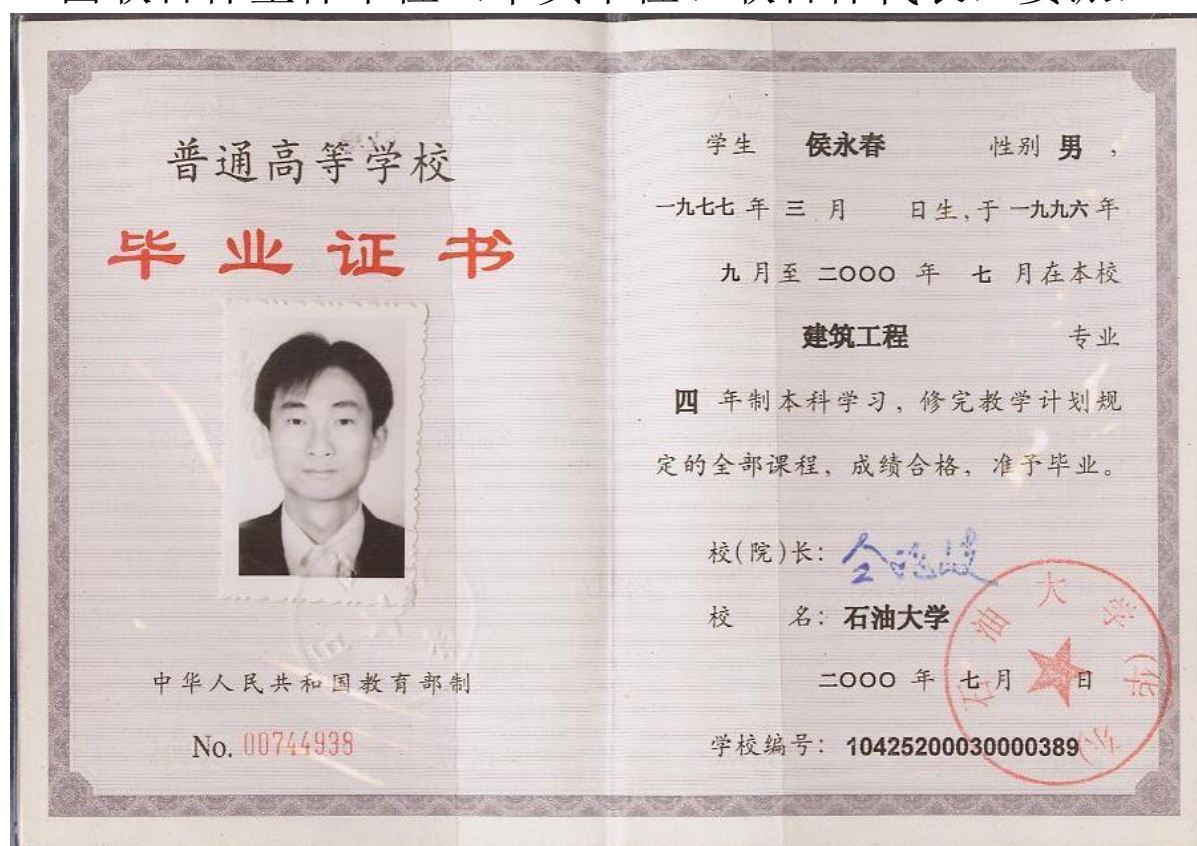 普通高等学校
毕业证书
中华人民共和国教育部制
No. 00744938
学生 侯永春 性别 男，
一九七七 年 三 月 日生，于 一九九六 年
九 月至 二〇〇〇 年 七 月在本校
建筑工程 专业
四 年制本科学习，修完教学计划规
定的全部课程，成绩合格，准予毕业。
校(院)长：
校 名：石油大学
二〇〇〇 年 七 月 日
学校编号：10425200030000389
石油大学(华东)